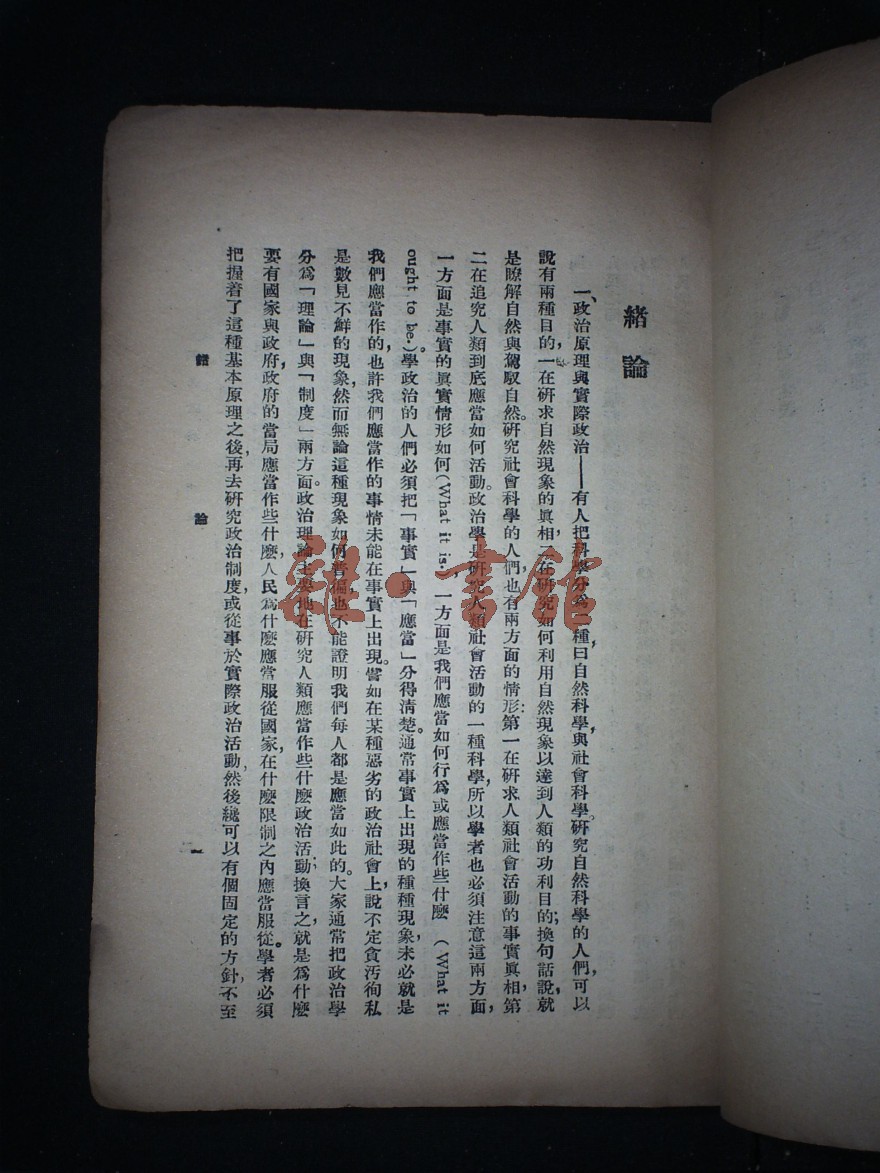 緒論
一、政治原理與實際政治——有人把科學分爲二種，曰自然科學，與社會科學。研究自然科學的人們，可以
說有兩種目的，一在研求自然現象的眞相，一在研究如何利用自然現象以達到人類的功利目的；換句話說，就
是瞭解自然與駕馭自然。研究社會科學的人們，也有兩方面的情形：第一在研求人類社會活動的事實眞相，第
二在追究人類到底應當如何活動。政治學是研究人類社會活動的一種科學，所以學者也必須注意這兩方面，
一方面是事實的眞實情形如何（What it is.），一方面是我們應當如何行爲或應當作些什麽（What it
ought to be.）。學政治的人們必須把「事實」與「應當」分得清楚。通常事實上出現的種種現象，未必就是
我們應當作的，也許我們應當作的事情未能在事實上出現。譬如在某種惡劣的政治社會上，說不定貪污徇私
是數見不鮮的現象，然而無論這種現象如何普徧，也不能證明我們每人都是應當如此的。大家通常把政治學
分爲「理論」與「制度」兩方面。政治理論主要地在研究人類應當作些什麽政治活動；換言之，就是爲什麽
要有國家與政府，政府的當局應當作些什麽，人民爲什麽應當服從國家，在什麽限制之內應當服從。學者必須
把握着了這種基本原理之後，再去研究政治制度，或從事於實際政治活動，然後纔可以有個固定的方針，不至
緒論
一
雜·書館